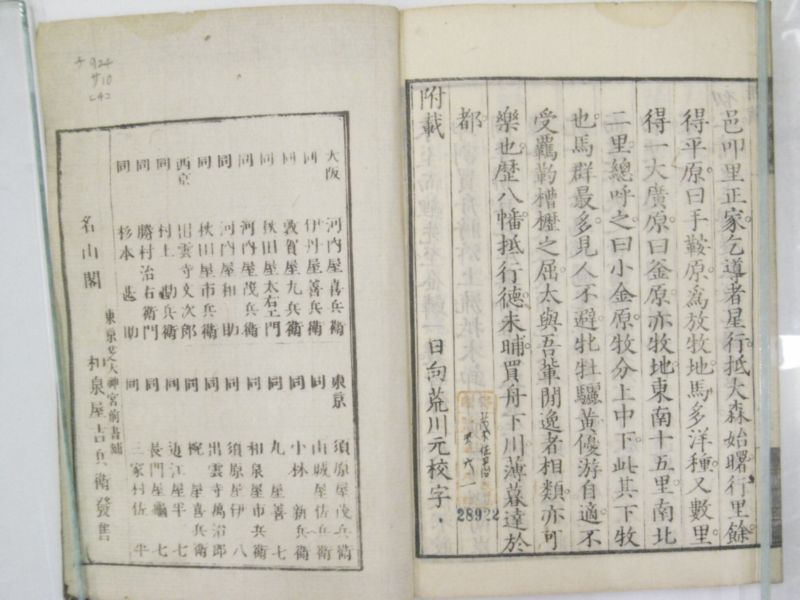 邑叩里正家乞導者星行抵大森始曙行里餘
得平原曰手鞍原爲放牧地馬多洋種又數里
得一大廣原曰釜原亦牧地東南十五里南北
二里總呼之曰小金原牧分上中下此其下牧
也馬群最多見人不避牝牡驪黃優游自適不
受羈靮槽櫪之屈太與吾輩閒逸者相類亦可
樂也歷八幡抵行德未晡買舟下川薄暮達於
都
附載 日向荒川元校字
28922
大阪 河内屋喜兵衛
同 伊丹屋善兵衛
同 敦賀屋九兵衛
同 秋田屋太右エ門
同 河内屋茂兵衛
同 河内屋和助
同 秋田屋市兵衛
西京 出雲寺文次郎
同 村上勘兵衛
同 勝村治右衛門
同 杉本甚助
東京 須原屋茂兵衛
同 山城屋佐兵衛
同 小林新兵衛
同 丸屋善七
同 和泉屋市兵衛
同 須原屋伊八
同 出雲寺萬治郎
同 椀屋喜兵衛
同 近江屋半七
同 長門屋龜七
同 三家村佐平
東京芝大神宮前書舗
名山閣 和泉屋吉兵衛發售
924